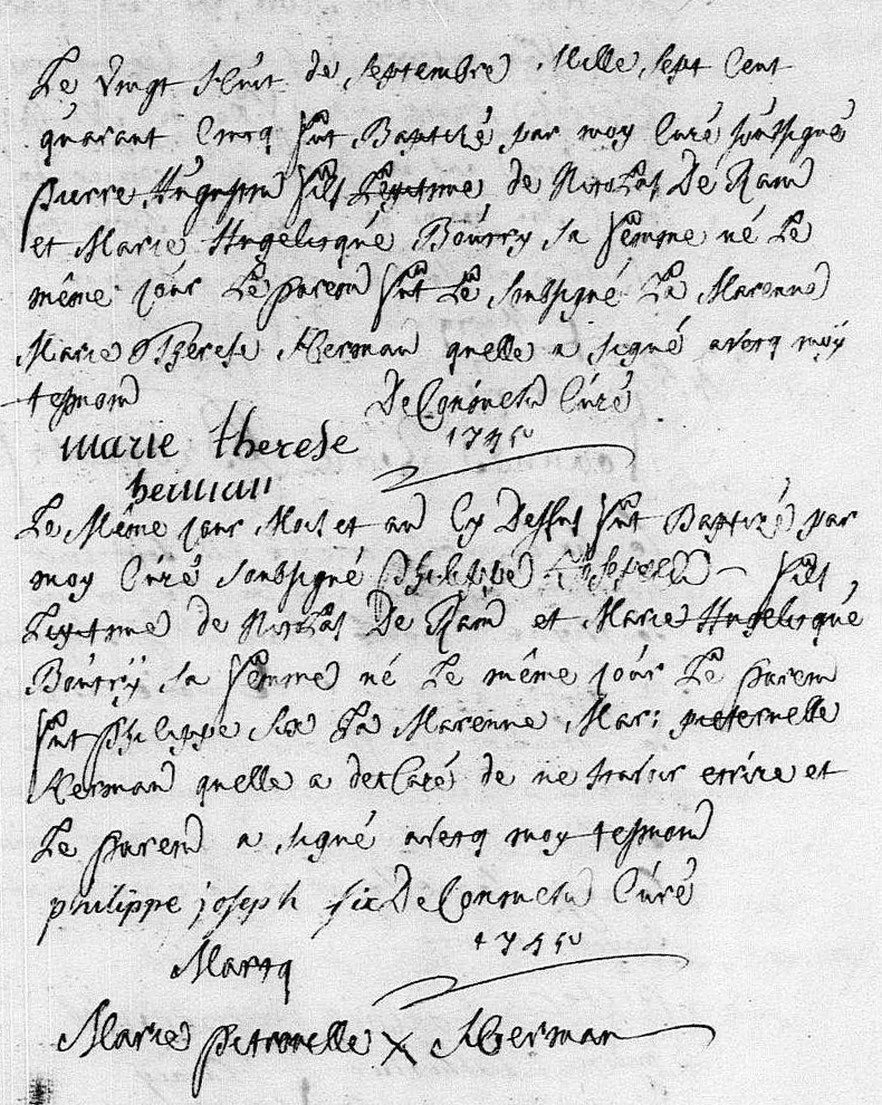 Le vingt Huit de Septembre Mille Sept Cent
quarant Cincq fut Baptizé par moy Curé soussigné
pierre Augustin fils Legitime de Nicolas De Ram
et Marie Angelicque Bourry sa femme né Le
même jour Le parein fut Le soussigné La Marenne
Marie Therese Herman quelle a signé avecq moy
temoin De Curé
1745
marie therese
herman
Le Même jour Mois et an Cy Dessus fut Baptizé par
moy Curé soubsigné philippe Joseph fils
Legitime de Nicolas De Ram et Marie Angelicque
Bourry sa femme né Le même jour Le parein
fut philippe Six La Marenne Mari peternelle
Herman quelle a declaré de ne scavoir ecrire et
Le parein a signé avecq moy temoin
philippe joseph six De Curé
1745
Marcq
Marie petronelle X Herman